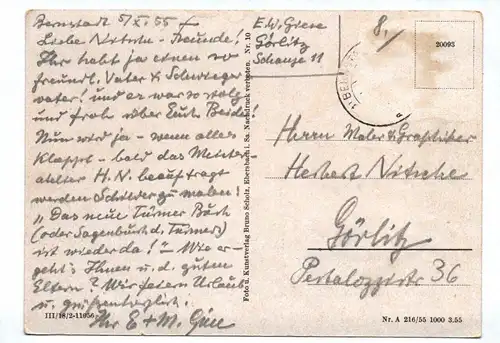 Bernstadt 5/XI 55
Liebe Nitsche-Freunde!
Ihr habt ja einen so
freundl. Vater & Schwieger
vater! und er war so stolz
und froh über Euch Beide!
Nun wird ja - wenn alles
klappt - bald das Meister
atelier H. N. beauftragt
werden Schilder zu malen!
"Das neue Türmer Buch
(oder Sagenbuch d. Türmers)
ist wieder da!" - Wie er-
geht's Ihnen u. d. guten
Eltern? Wir feiern Urlaub
u. grüßen herzlich.
Ihr E + M. Giese
III/18/2-11056
E. W. Giese
Görlitz
Schanze 11
Foto u. Kunstverlag Bruno Scholz, Ebersbach i. Sa. Nachdruck verboten. Nr. 10
8,
BE
20093
Herrn Maler & Graphiker
Herbert Nitsche
Görlitz
Pestalozzistr 36
Nr. A 216/55 1000 3.55